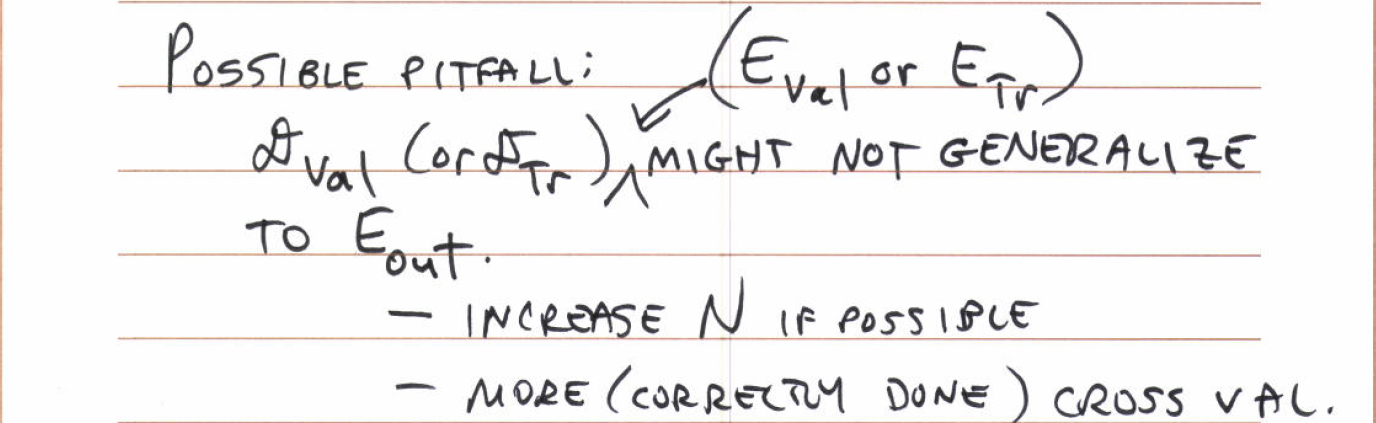 POSSIBLE PITFALL: (E_Val or E_Tr)
𝒟_Val (or 𝒟_Tr) ∧ MIGHT NOT GENERALIZE
TO E_out.
— INCREASE N IF POSSIBLE
— MORE (CORRECTLY DONE) CROSS VAL.